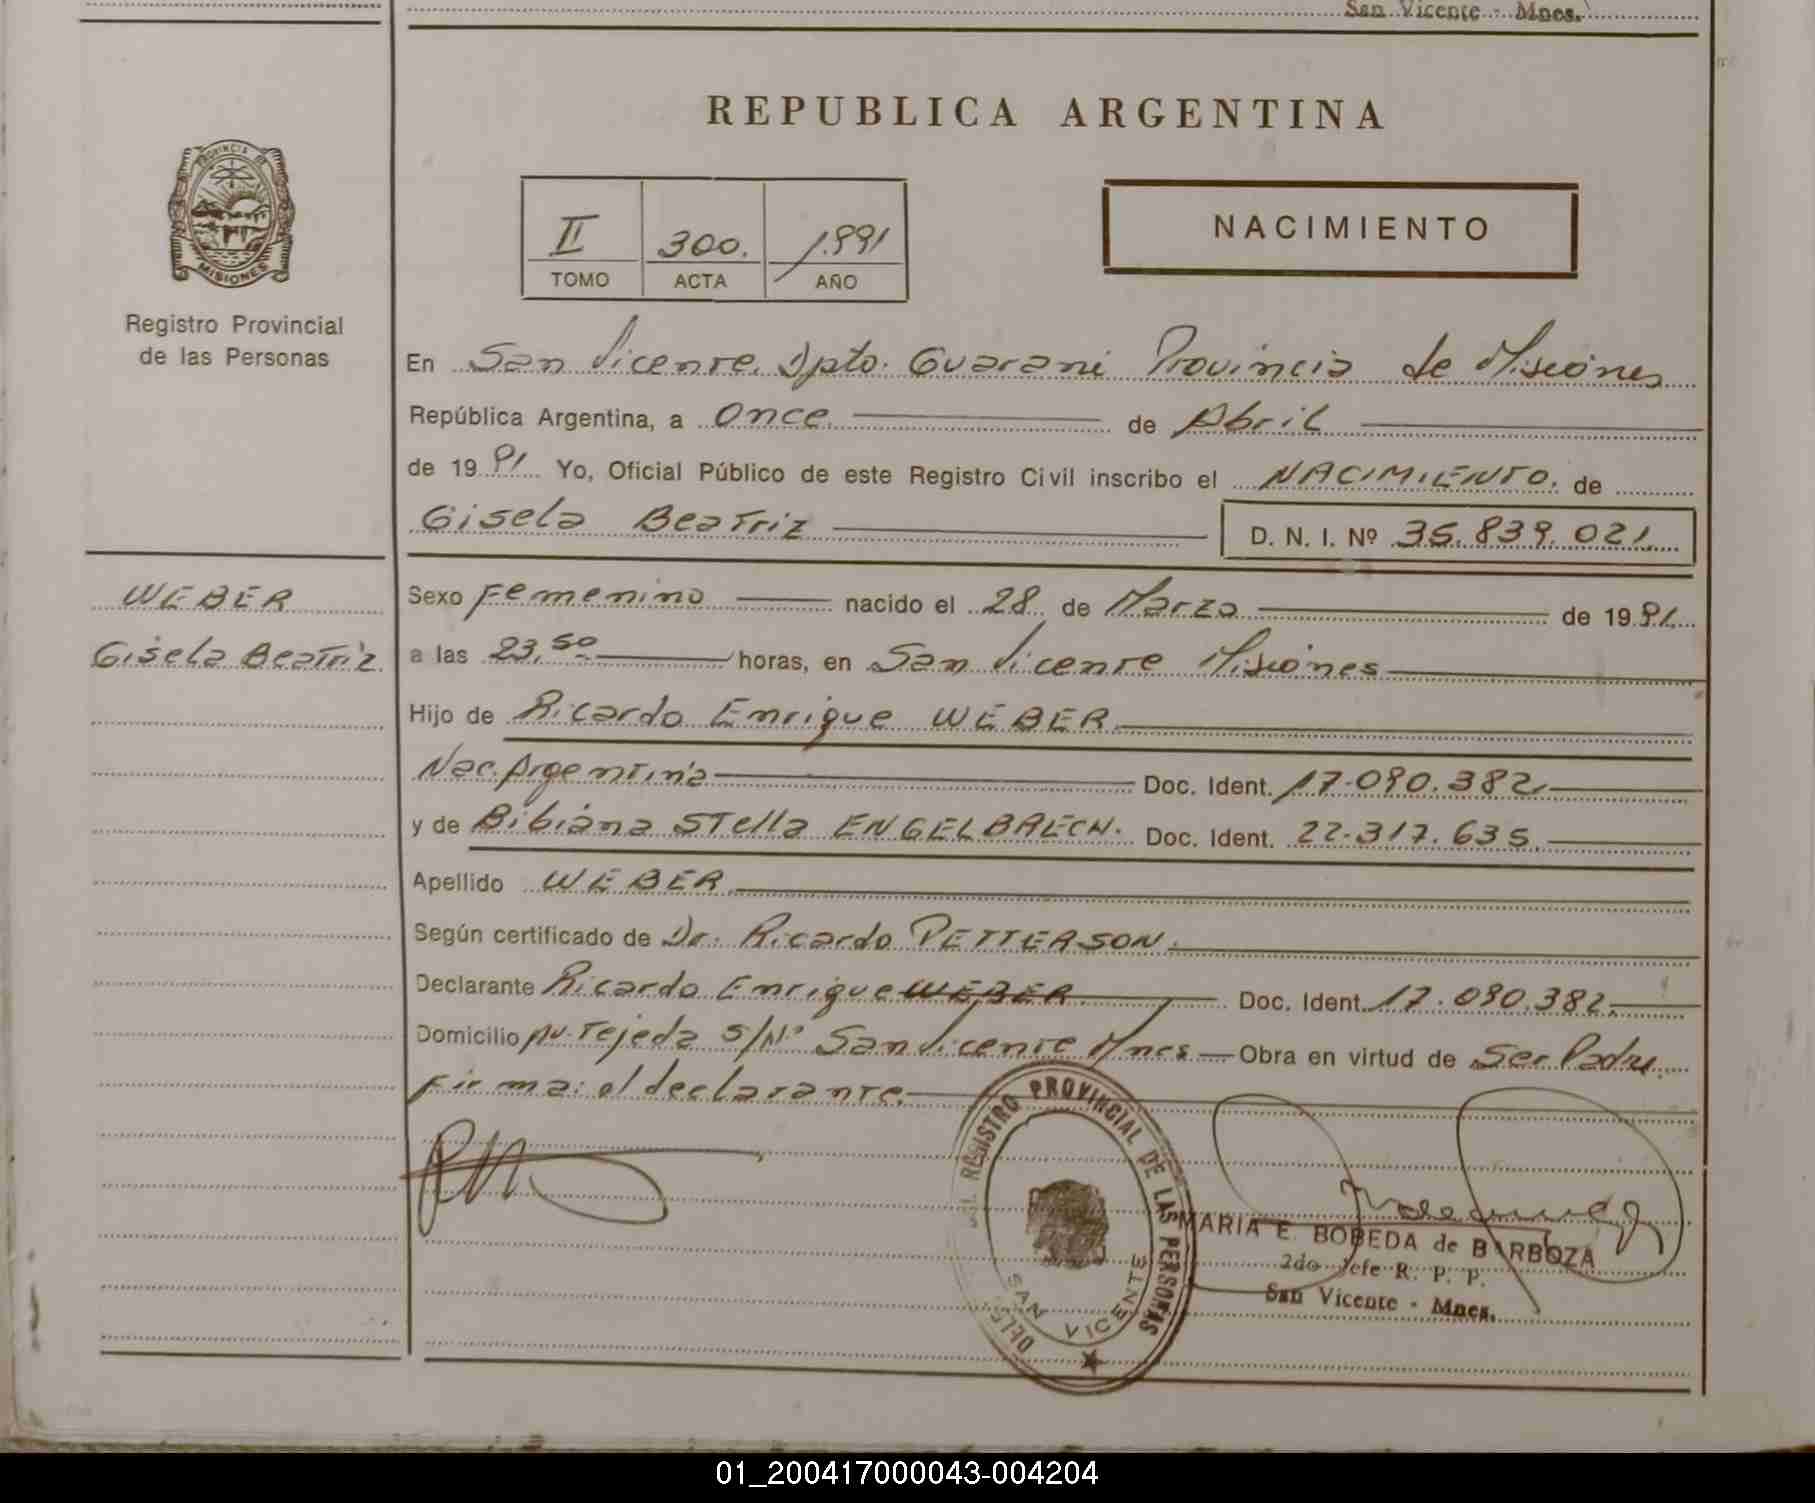 San Vicente - Mnes.
REPUBLICA ARGENTINA
PROVINCIA DE
MISIONES
Registro Provincial
de las Personas
II 300. 1.991
TOMO ACTA AÑO
NACIMIENTO
En San Vicente. Dpto. Guarani Provincia de Misiones
República Argentina, a Once de Abril
de 1991 Yo, Oficial Público de este Registro Civil inscribo el NACIMIENTO. de
Gisela Beatriz D. N. I. Nº 35.839.021.
WEBER
Gisela Beatriz
Sexo Femenino nacido el 28 de Marzo de 1991.
a las 23,50 horas, en San Vicente Misiones
Hijo de Ricardo Enrique WEBER
Nac. Argentina Doc. Ident. 17.090.382.
y de Bibiana Stella ENGELBRECH. Doc. Ident. 22.317.635.
Apellido WEBER
Según certificado de Dr. Ricardo PETTERSON.
Declarante Ricardo Enrique WEBER Doc. Ident. 17.090.382.
Domicilio Av. Tejeda S/Nº San Vicente Mnes Obra en virtud de Ser Padre.
Firma: el declarante.
DEL REGISTRO PROVINCIAL DE LAS PERSONAS
SAN VICENTE
MARIA E. BOBEDA de BARBOZA
2do Jefe R. P. P.
San Vicente - Mnes.
01_200417000043-004204